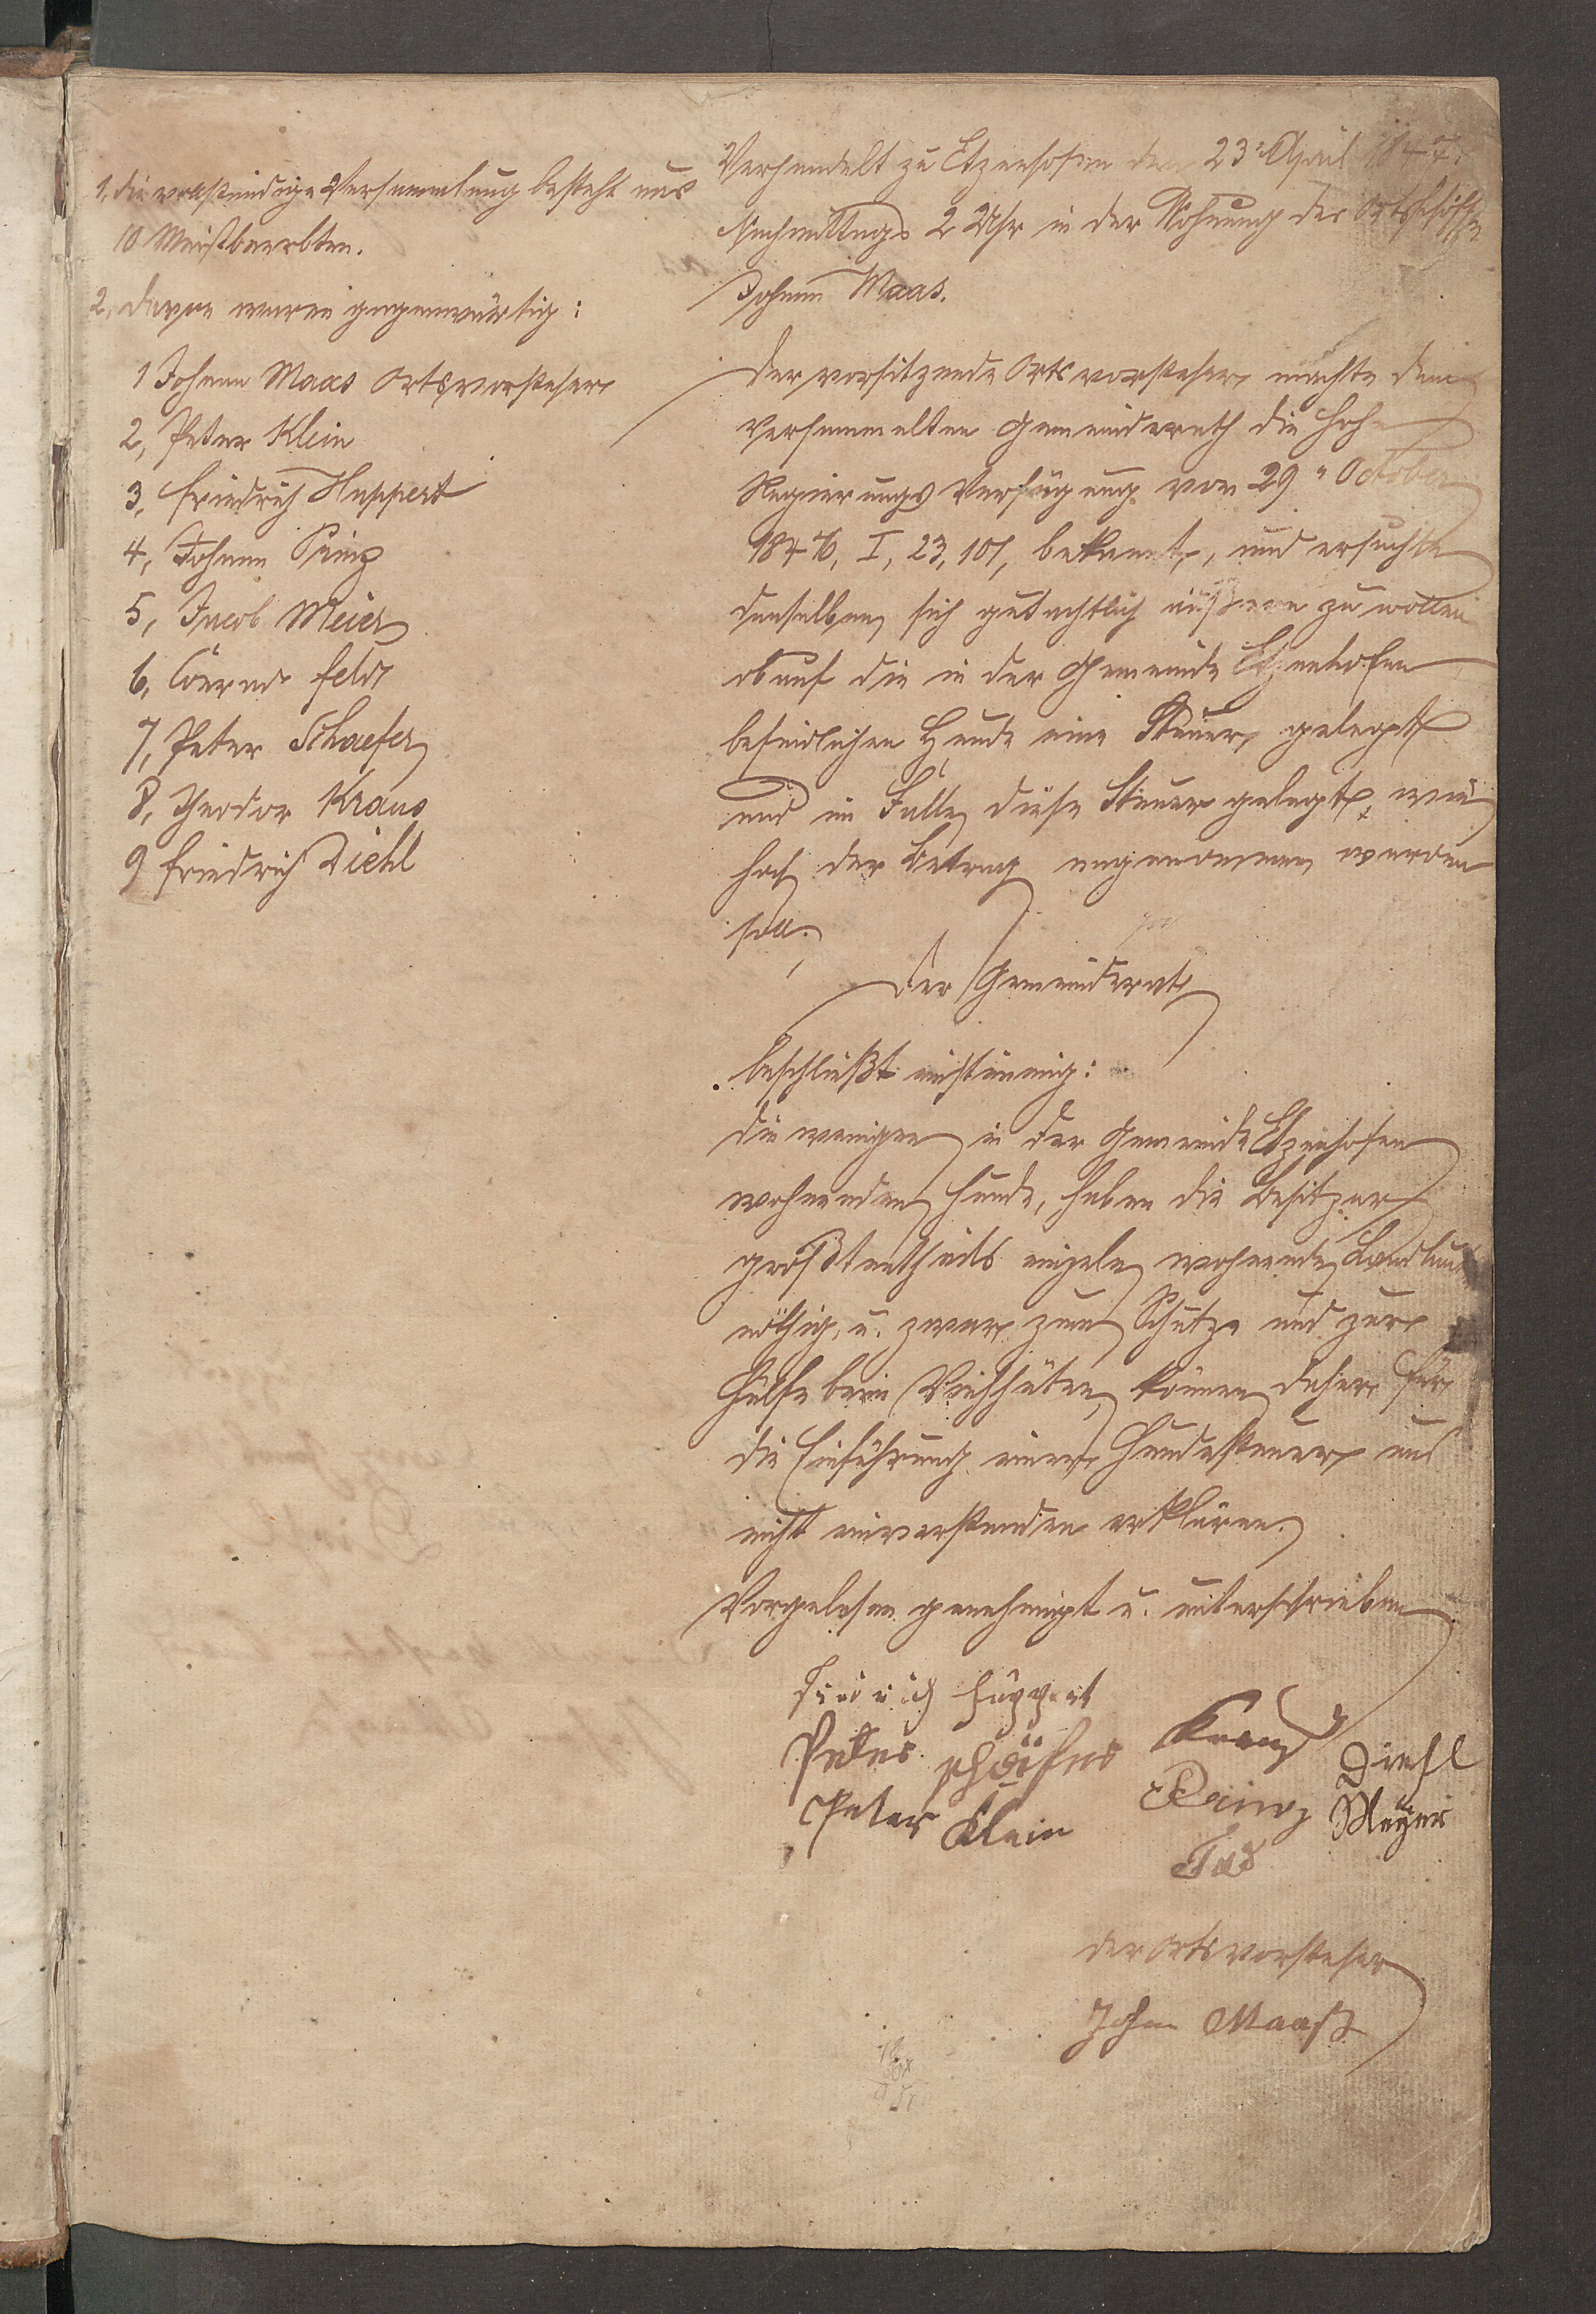 1, die vollständige Versammlung besteht aus
10 Meistbeerbten.
2, davon waren gegenwärtig:
1 Johann Maas Ortsvorsteher
2, Peter Klein
3, Friedrich Huppert
4, Johann Prinz
5, Jacob Meier
6, Conrad Feld
7, Peter Schaefer
8, Theodor Kraus
9 Friedrich Diehl
Verhandelt zu Etzenhofen den 23t April 1847.
Nachmittags 2 Uhr in der Wohnung des
Johann Maas.
Der vorsitzende Ortsvorsteher machte dem
versammelten Gemeinderath die hohe
Regierungs Verfügung vom 29" October
1846, I, 23,101, bekannt, und ersuchte
denselben, sich gutachtlich äußern zu wollen
ob auf die in der Gemeinde Etzenhofen
befindlichen Hunde eine Steuer gelegt
und im Falle diese Steuer gelegt, wie
hoch der Betrag angenommen werden
soll.
Der Gemeinderath
beschließt einstimmig:
die wenigen in der Gemeinde Etzenhofen
wohnenden Hunde, haben die Besitzer
größtentheils einzeln wohnende Landleute
nöthig, u. zwar zum Schutze und zur
Hülfe beim Viehhüten, können daher für
die Einführung einer Hundesteuer uns
nicht einverstanden erklären.
Vorgelesen genehmigt u. unterschrieben
Friedrich Huppert
Peter Schäfer Kraus Diehl
Peter Klein Prinz Meyer
der Ortsvorsteher
Johann Maaß